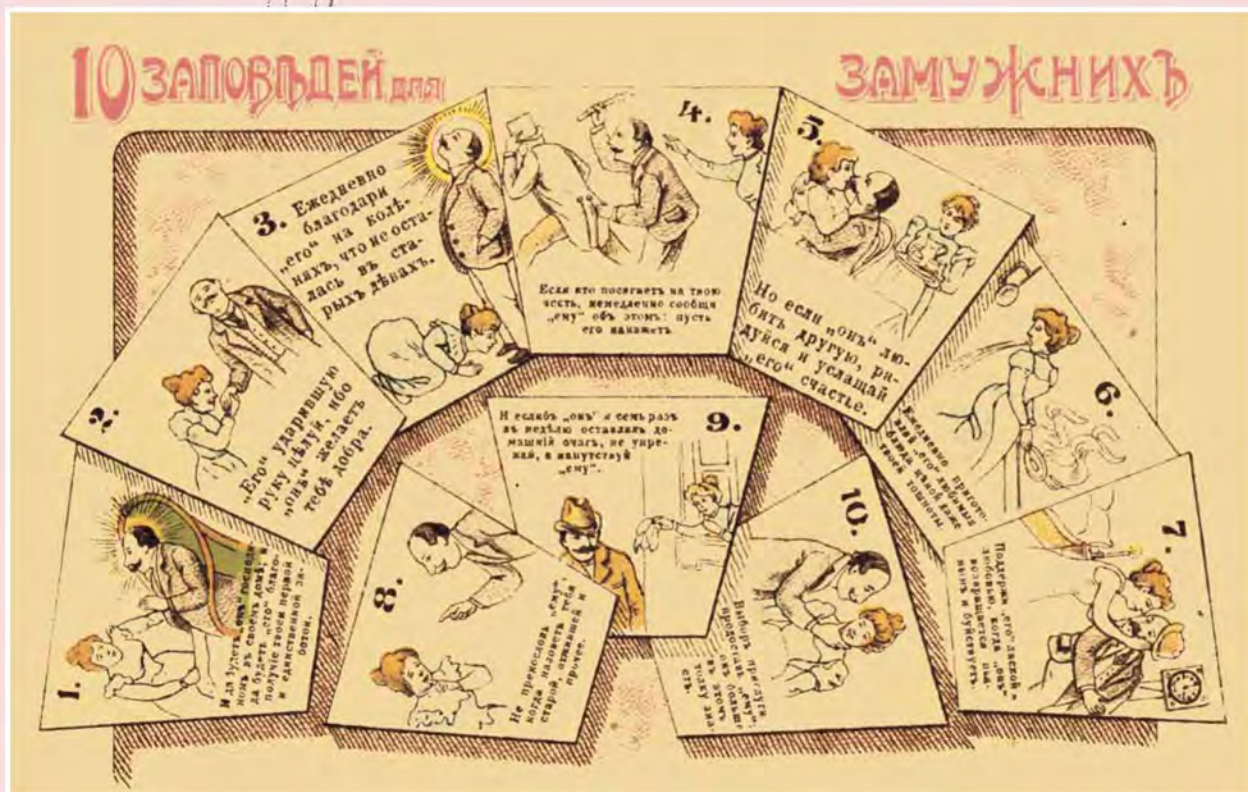 10 ЗАПОВѢДЕЙ для ЗАМУЖНИХЪ
1.
И да будетъ „онъ“ господи-
номъ въ своемъ домѣ; и
да будетъ „его“ благо-
получіе твоей первой
и единственной за-
ботой.
2.
„Его“ ударившую
руку цѣлуй, ибо
„онъ“ желаетъ
тебѣ добра.
3. Ежедневно
благодари
„его“ на колѣ-
няхъ, что не оста-
лась въ ста-
рыхъ дѣвахъ.
4.
Если кто посягнетъ на твою
честь, немедленно сообщи
„ему“ объ этомъ: пусть
его накажетъ
5.
Но если „онъ“ лю-
битъ другую, ра-
дуйся и услащай
„его“ счастье.
6.
Ежедневно пригото-
вляй „его“ любимыя
блюда цѣной даже
твоей тошноты
7.
Поддержи „его“ лаской и
любовью, когда „онъ“
возвращается пья-
нымъ и буйствуетъ.
8.
Не прекословь „ему“
когда назоветъ тебя
старой, отжившей и
прочее.
9.
И еслибъ „онъ“ и семь разъ
въ недѣлю оставлялъ до-
машній очагъ, не упре-
кай, а напутствуй
„ему“.
10.
Выборъ прислуги
предоставь „ему“;
онъ больше
въ этомъ
толку зна-
етъ.